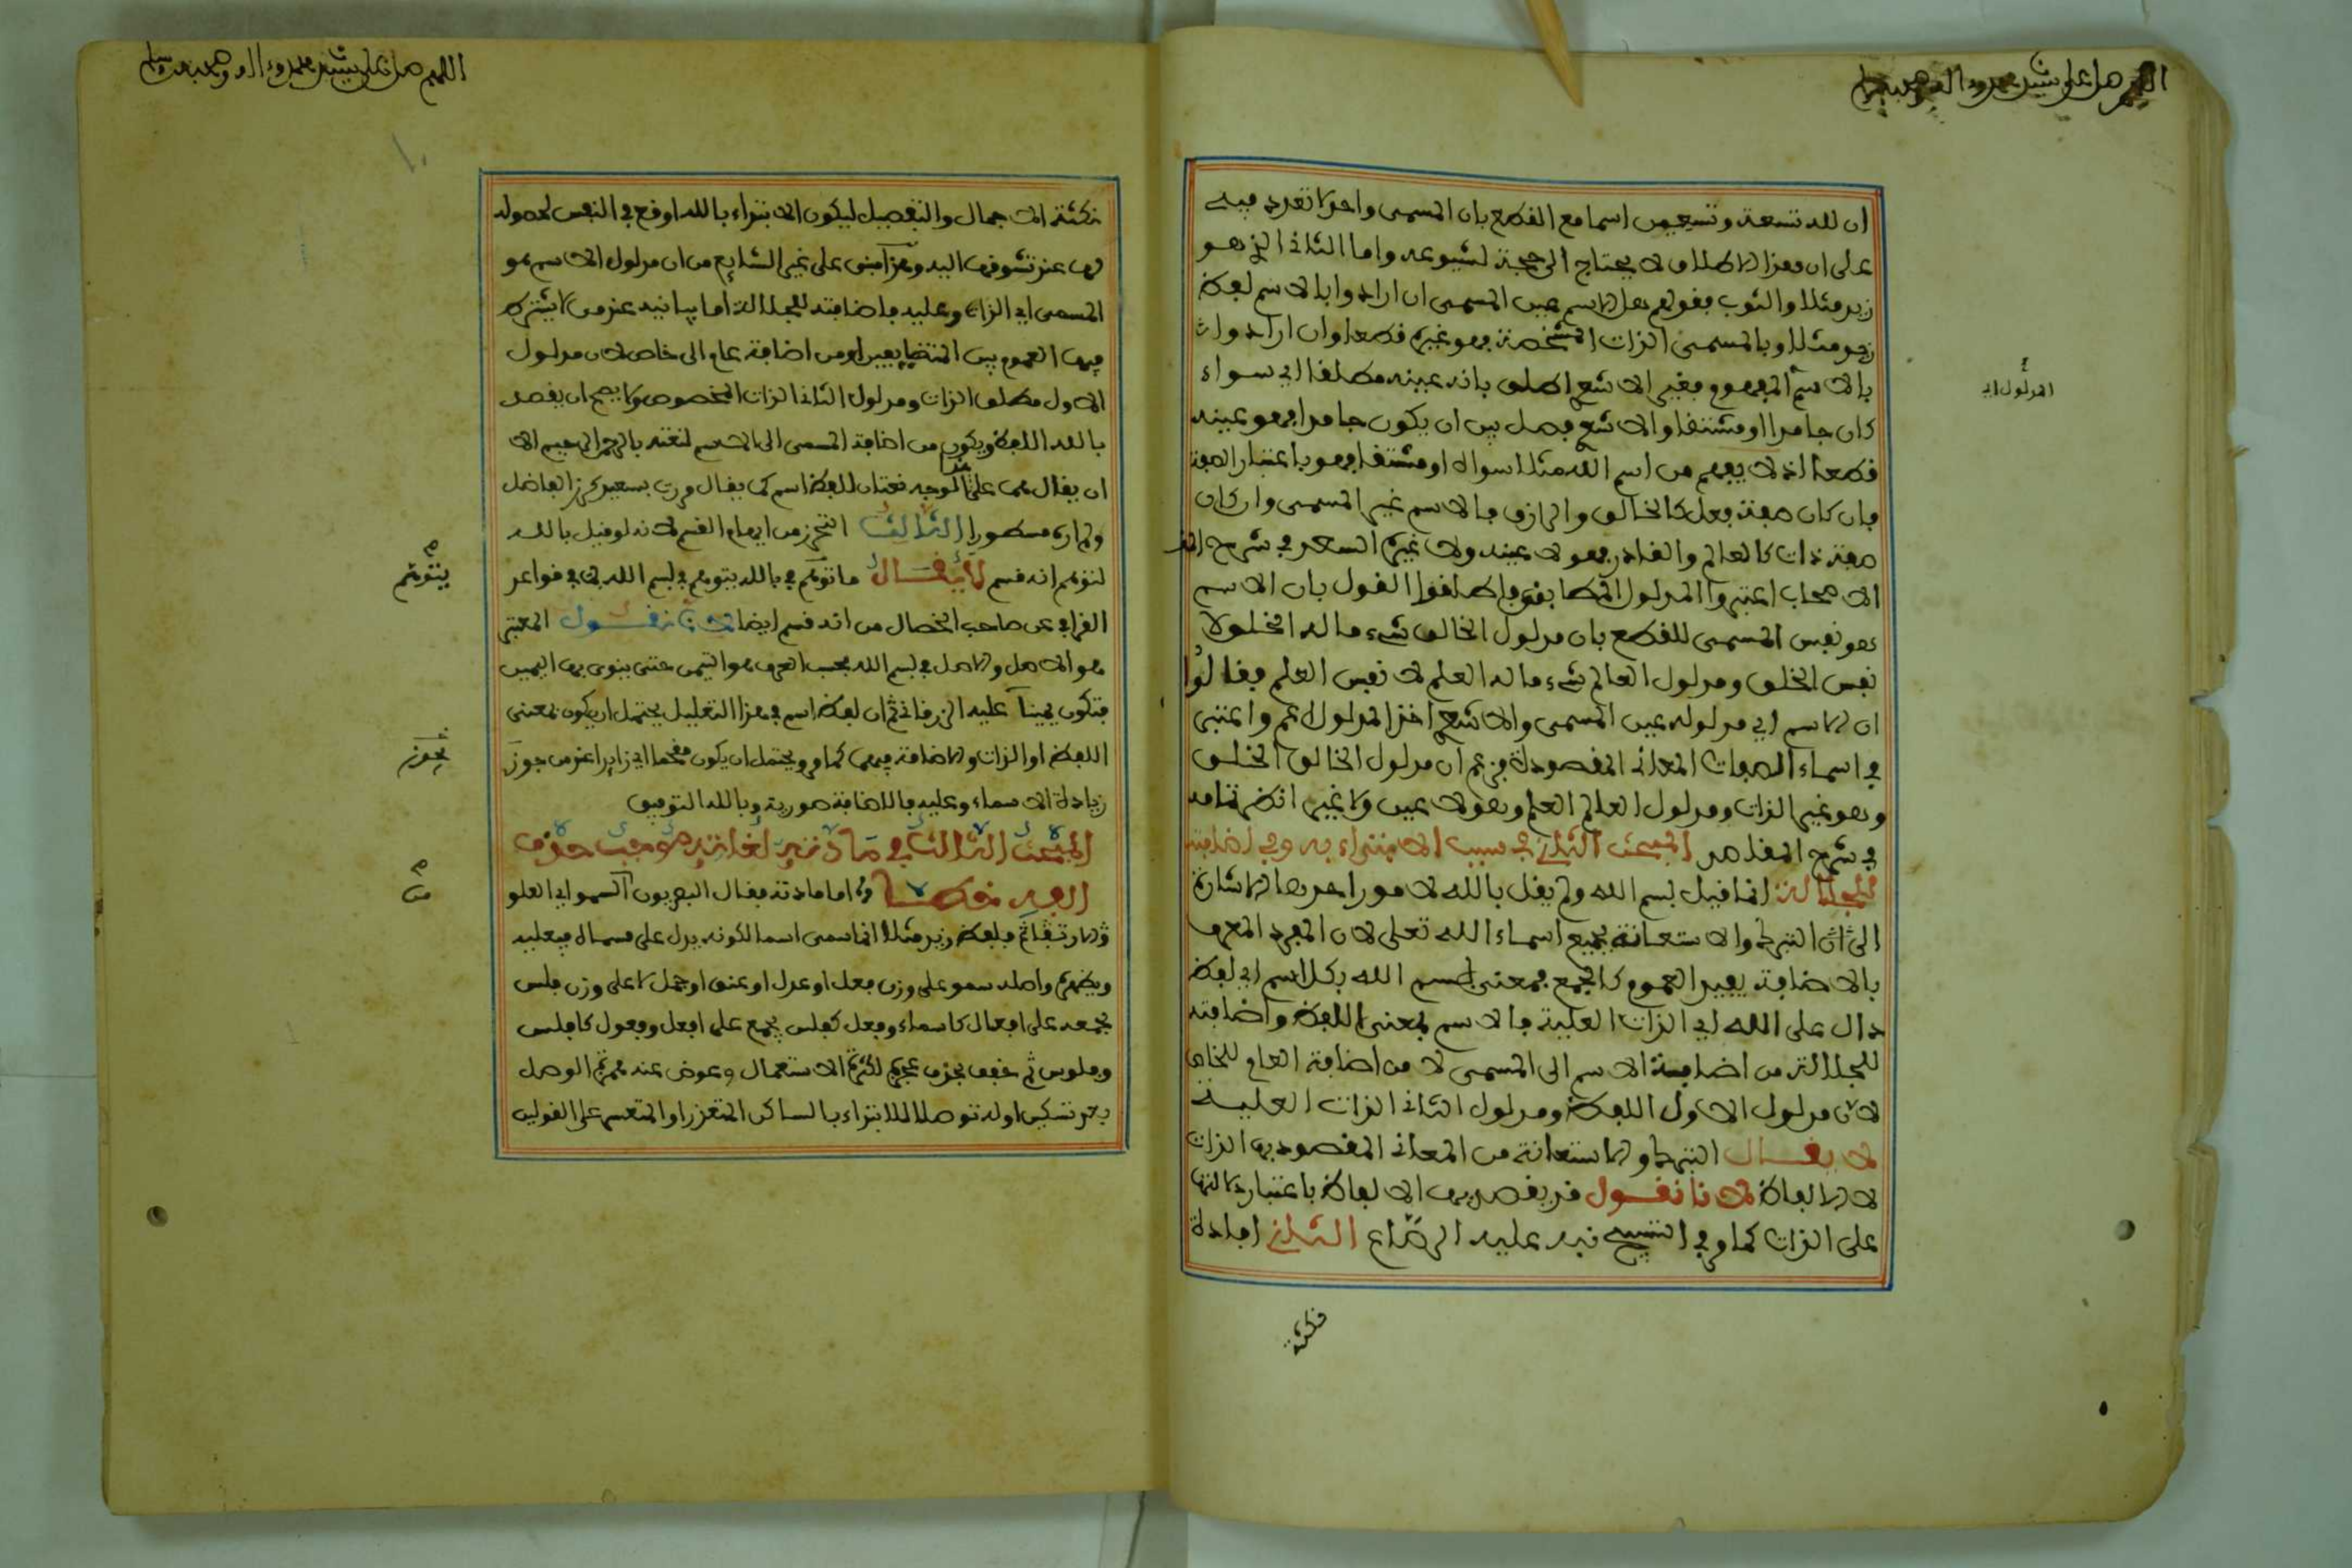 اللهم صل على سيدنا محمد وءاله وصحبه وسلم
ان لله تسعة وتسعين اسما مع القطع بان المسمى واحد لا تعدد فيه
على ان هذا الاطلاق لا يحتاج الى حجة لشيوعه واما الثاني الذي هو
زيد مثلا والثوب فقولهم هل الاسم عين المسمى ان ارادوا بالاسم لفظ
زيد مثلا وبالمسمى الذات المشخصة فهو غيره قطعا وان ارادوا
بالاسم المفهوم فغير الاشعري اطلق بانه عينه مطلقا اي سواء
المدلول اي
كان جامدا او مشتقا والاشعري فصل بين ان يكون جامدا فهو عينه
قطعا اذ لا يفهم من اسم الله مثلا سواه او مشتقا فهو باعتبار الصفة
فان كان صفة فعل كالخالق والرازق فالاسم غير المسمى وان كان
صفة ذات كالعالم والقادر فهو لا عينه ولا غيره السعد في شرح
الاصحاب اعتبروا المدلول المطابقي فاطلقوا القول بان الاسم
هو نفس المسمى للقطع بان مدلول الخالق شيء ما له الخلق لا
نفس الخلق ومدلول العالم شيء ما له العلم لا نفس العلم فقالوا
ان الاسم اي مدلوله عين المسمى والاشعري اخذ المدلول اعم واعتبر
في اسماء الصفات المعاني المقصودة فزعم ان مدلول الخالق الخلق
وهو غير الذات ومدلول العالم العلم وهو لا عين ولا غير انظر تمامه
في شرح المقاصد المبحث الثاني في سبب الابتداء به وفي اضافته
للجلالة انما قيل بسم الله ولم يقل بالله لامور احدها الاشارة
الى ان التبرك والاستعانة بجميع اسماء الله تعلى لان المفرد المعرف
بالاضافة يفيد العموم كالجمع فمعنى بسم الله بكل اسم اي لفظ
دال على الله اي الذات العلية فالاسم بمعنى اللفظ واضافته
للجلالة من اضافة الاسم الى المسمى لا من اضافة العام للخاص
لان مدلول الاول اللفظ ومدلول الثاني الذات العلية
لا يقال التبرك والاستعانة من المعاني المقصود بها الذات
لا الالفاظ لانا نقول قد يقصد بها الالفاظ باعتبار دلالتها
على الذات كما في التسبيح نبه عليه الرصاع الثاني افادة
نكتة
اللهم صل على سيدنا محمد وءاله وصحبه وسلم
نكتة الاجمال والتفصيل ليكون الابتداء بالله اوقع في النفس لحصوله
لها عند تشوفها اليه وهذا مبني على غير الشايع من ان مدلول الاسم هو
المسمى اي الذات وعليه فاضافته للجلالة اما بيانية عند من لا يشترط
فيها العموم بين المتضايفين او من اضافة عام الى خاص لان مدلول
الاول مطلق الذات ومدلول الثاني الذات المخصوص ولا يصح ان يقصد
بالله اللفظ ويكون من اضافة المسمى الى الاسم لنعته بالرحمن الرحيم الا
ان يقال هما على الوجه نعتان للفظ اسم كما يقال مررت بسعيد كرز الفاضل
ولم اره مسطورا الثالث التحرز من ايهام القسم لانه لو قيل بالله
لتوهم انه قسم لا يقال ما توهم في بالله يتوهم في بسم الله في قواعد
يتوهم
القرافي عن صاحب الخصال من انه قسم ايضا لانا نقول المعتبر
هو الاصل والاصل في بسم الله بحسب العرف هو التيمن حتى ينوى بها اليمين
فتكون يمينا عليه الزرقاني ثم ان لفظ اسم في هذا التعليل يحتمل ان يكون بمعنى
اللفظ او الذات والاضافة فيهما كما مر ويحتمل ان يكون مقحما اي زايدا عند من جوز
يجوز
زيادة الاسماء وعليه فالاضافة صورية وبالله التوفيق
المبحث الثالث في مادته لغاته موجب حذف
الفه خطا اما مادته فقال البصريون السمو اي العلو
من
والارتفاع فلفظ زيد مثلا انما سمى اسما لكونه يدل على مسماه فيعليه
ويظهره واصله سمو على وزن فعل او عدل او عنق او جمل لا على وزن فلس
بجمعه على افعال كاسماء وفعل كفلس يجمع على افعل وفعول كافلس
وفلوس ثم خفف بحذف عجزه لكثرة الاستعمال وعوض عنه همزة الوصل
بعد تسكين اوله توصلا للابتداء بالساكن المتعذر او المتعسر على القولين